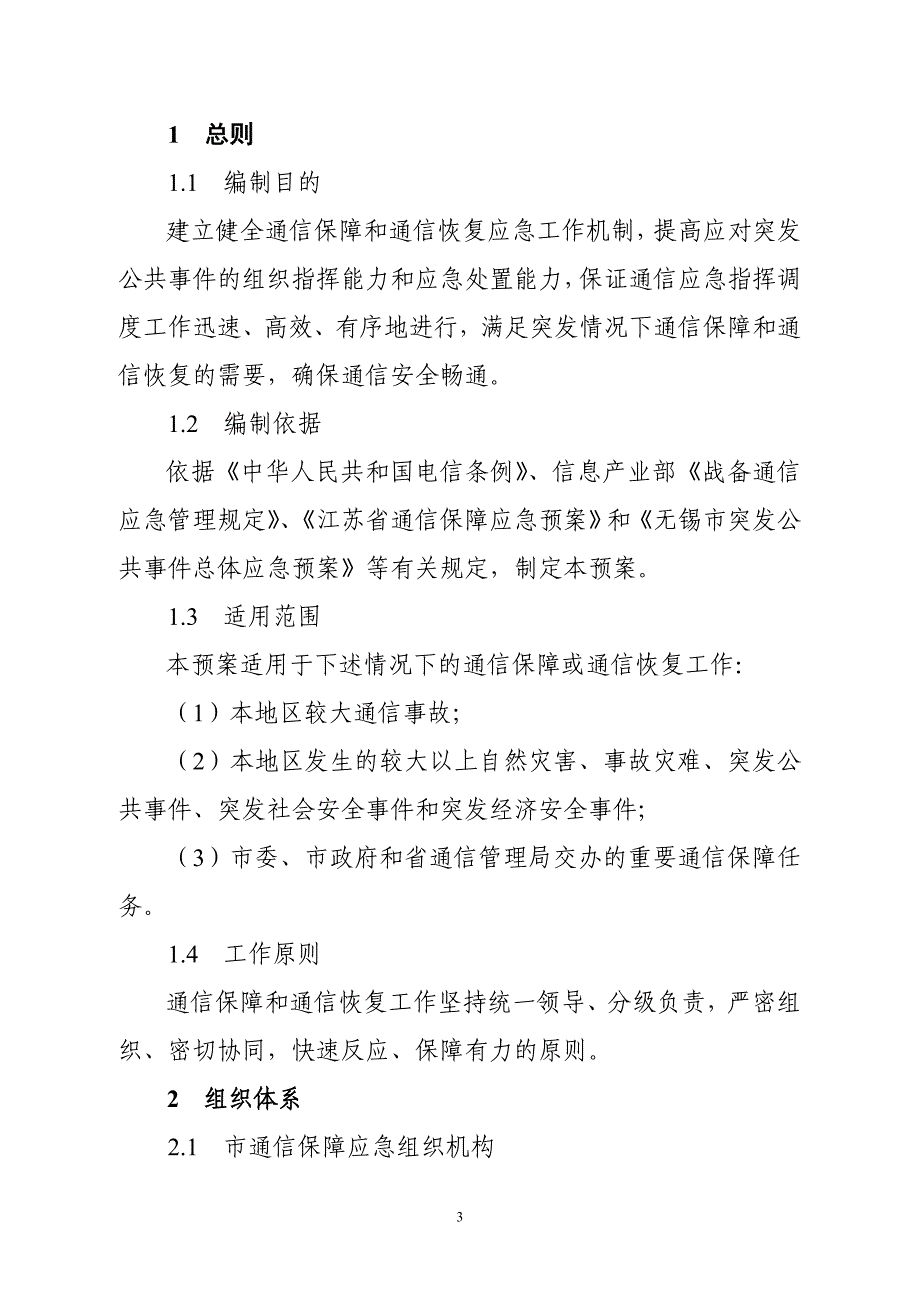 1　总则
1.1　编制目的
建立健全通信保障和通信恢复应急工作机制，提高应对突发
公共事件的组织指挥能力和应急处置能力，保证通信应急指挥调
度工作迅速、高效、有序地进行，满足突发情况下通信保障和通
信恢复的需要，确保通信安全畅通。
1.2　编制依据
依据《中华人民共和国电信条例》、信息产业部《战备通信
应急管理规定》、《江苏省通信保障应急预案》和《无锡市突发公
共事件总体应急预案》等有关规定，制定本预案。
1.3　适用范围
本预案适用于下述情况下的通信保障或通信恢复工作：
（1）本地区较大通信事故；
（2）本地区发生的较大以上自然灾害、事故灾难、突发公
共事件、突发社会安全事件和突发经济安全事件；
（3）市委、市政府和省通信管理局交办的重要通信保障任
务。
1.4　工作原则
通信保障和通信恢复工作坚持统一领导、分级负责，严密组
织、密切协同，快速反应、保障有力的原则。
2　组织体系
2.1　市通信保障应急组织机构
3